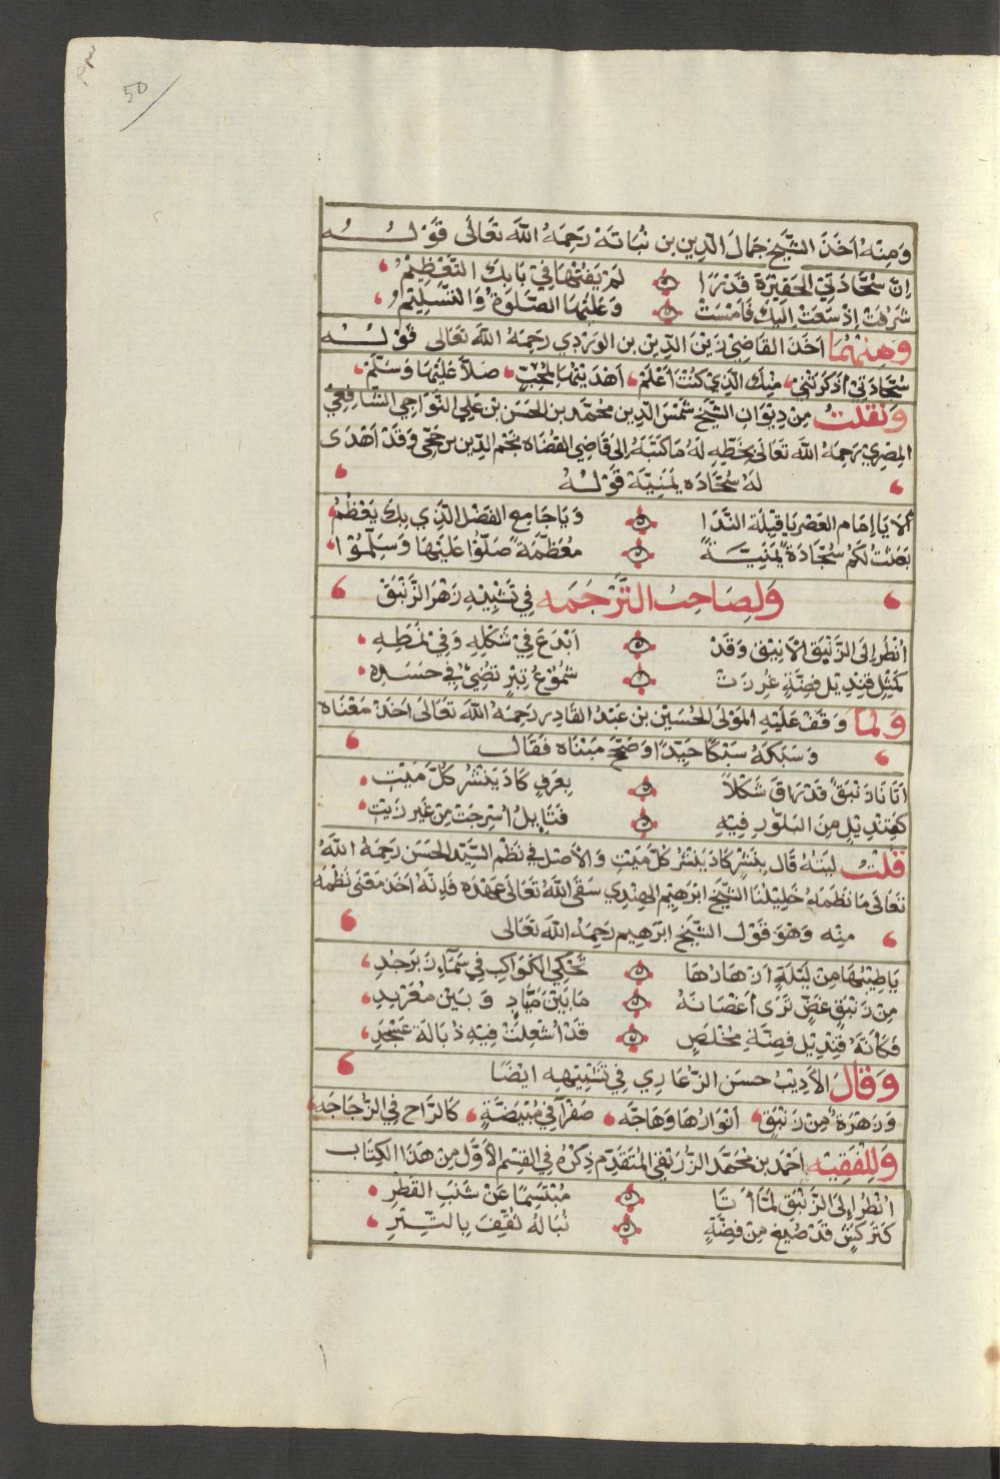 50
وَمِنْهُ اَخَذَ الشَّيخ جَمَالَ الدِّينِ بن نُبَاتَة رَحِمَهُ اللهَ تَعَالَى قَوْلُـــهُ
اِنَّ سُجَّادَتِي الحَقِيْرَةَ قَدْرًا لَمْ يَفُتْهَا فِي بَابِكَ التَّعْظِيْمُ
شَرُفَتْ اِذْ سَعَتْ اِلَيْكَ فَامْسَتْ وَعَلَيْهَا الصَّلوةُ وَالتَّسْلِيْمُ
وَمِنْهُمَا اَخَذَ القَاضِي زَيْنَ الدِّيْنِ بن الوَرْدِي رَحِمَهُ اللهَ تَعَالَى قَوْلُـــهُ
سُجَّادَتِي اَذْكَرَتْنِي مِنْكَ الَّذِي كُنْتُ اَعْلَمْ اَهْدَيْتُهَا لِمُحِبٍّ صَلاَّ عَلَيْهَا وَسَلَّمْ
وَنَقَلْتُ مِنْ دِيْوَانِ الشَّيْخ شَمْسَ الدِّين مُحَمَّد بن الحَسَنِ بْن عَلِي النَّوَاجِي الشَّافِعِي
المِصْرِي رَحِمَهُ اللهَ تَعَالَى بِخَطِّهِ لَهُ مَا كَتَبَهُ اِلَى قَاضِي القُضَاه نَجْم الدِّين بن حَجِّى وَقَدْ اَهْدَى
لَهُ سُجَّادَه يَمَنِيَّة قَوْلُهُ
اَلاَ يَا اِمَام العَصْرِ يَا قِبْلَةَ النَّدَا وَيَا جَامِع الفَضْلِ الَّذِي بِكَ يَعْظُمُ
بَعَثْتُ لَكُمْ سُجَّادَةً يَمَنِيَّـــةً مُعَظَّمَةً صَلُّوا عَلَيْهَا وَسَلِّمُوْا
وَلِصَاحِبِ التَّرْجَمَه فِي تَشْبِيْهِ زَهْر الزَّنْبَقْ
اُنْظُر اِلَى الزَّنْبَقِ الاَنِيْقِ وَقَدْ اَبْدَعَ فِي شَكْلِهِ وَفِي نَمَطِهِ
كَمِثْلِ قِنْدِيْلِ فِضَّةٍ غُرِزَتْ شُمُوْعُ تِبْرٍ تُضِيْءُ فِي
وَلَمَّا وَقَفَ عَلَيْهِ المَوْلَى الحُسَيْن بن عَبْدُ القَادِر رَحِمَهُ اللهَ تَعَالَى اَخَذَ مَعْنَاه
وَسَبَكَهُ سَبْكًا جَيِّدًا وَصَحَّحَ مَبْنَاه فَقَال
اَتَانَا زَنْبَقٌ قَدْ رَاقَ شَكْلاً بِعَرْفٍ كَادَ يَنْشُر كُلَّ مَيْتِ
كَقِنْدِيْلٍ مِنَ البَلُّوْرِ فِيْهِ فَتَايِلُ اُسْرِجَتْ مِنْ غَيْرِ زَيْتِ
قُلْتُ لَيْتَهُ قَال بِنَشْرٍ كَادَ يَنْشُر كُلَّ مَيْتٍ وَالاَصْل فِي نَظْم السَّيِّد الحَسَن رَحِمَهُ اللهُ
تَعَالَى مَا نَظَمَهُ خَلِيْلُنَا الشَّيْخ اِبْرَهِيْم الهِنْدِي سَقَى اللهُ تَعَالَى عَهْدَه فَاِنَّهُ اَخَذَ مَعْنَى نَظْمَهُ
مِنْه وَهُوَ قَوْل الشَّيْخ اِبْرَهِيم رَحِمَهُ اللهَ تَعَالَى
يَا طِيْبَهَا مِنْ لَيْلَةٍ اَزْهَارُهَا تَحْكِي الكَوَاكِبَ فِي سَمَاءِ زَبَرْجَدِ
مِنْ زَنْبَقٍ غَضٍّ تَرَى اَغْصَانَهُ مَا بَيْنَ مَيَّادٍ وَ بَيْنَ مُغَرِّدِ
فَكَاَنَّهُ قِنْدِيْلُ فِضَّةِ مُخْلَصٍ قَدْ اُشْعِلَتْ فِيْهِ ذُبَالَة عَسْجَدِ
وَقَالَ الاَدِيْبُ حسَن الزَّعَارِي فِي تَشْبِيْهِهِ اَيْضًا
وَزَهْرَةٌ مِنْ زَنْبَقٍ اَنْوَارُهَا وَهَّاجَه صَفْرَآءُ فِي مُبْيَضَّةٍ كَالرَّاح فِي الزُّجَاجَه
وَلِلْفَقِيْه اَحْمَد بن مُحَمَّد الزُّرَيْقِي المُتَقَدِّم ذِكْرُه فِي القِسْمِ الاَوَّلِ مِنْ هَذَا الكِتَاب
اُنْظُر اِلَى الزَّنْبَقِ لَمَّا اَتَا مُبْتَسِمًا عَنْ شَنَبِ القَطْرِ
كَتَرْكَشٍ قَدْ صِيْغَ مِنْ فِضَّةٍ نُبَالُهُ ثُقِّفَ بِالتِّبْرِ